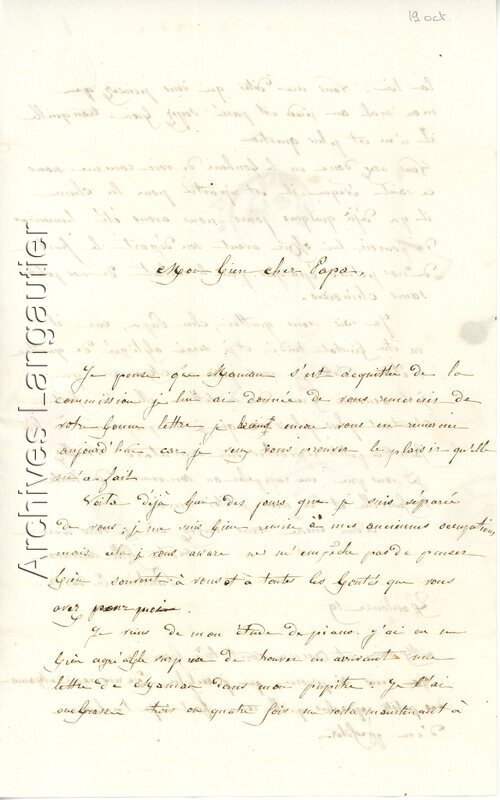 19 oct.
Mon bien cher Papa,
Je pense que Maman s'est acquittée de la
commission je lui ai donnée de vous remercier de
votre bonne lettre je veux encore vous en remercier
aujourd'hui car je veux vous prouver le plaisir qu'elle
m'a fait
Voila déjà bien des jours que je suis séparée
de vous, je me suis bien remise à mes anciennes occupations
mais cela je vous assure ne m'empêche pas de penser
bien souvent à vous et à toutes les bontés que vous
avez pour moi.
Je viens de mon étude de piano. j'ai eu une
bien agréable surprise de trouver en arrivant une
lettre de Maman dans mon pupitre. Je l'ai
embrassée trois ou quatre fois me voila maintenant à
Archives Langautier